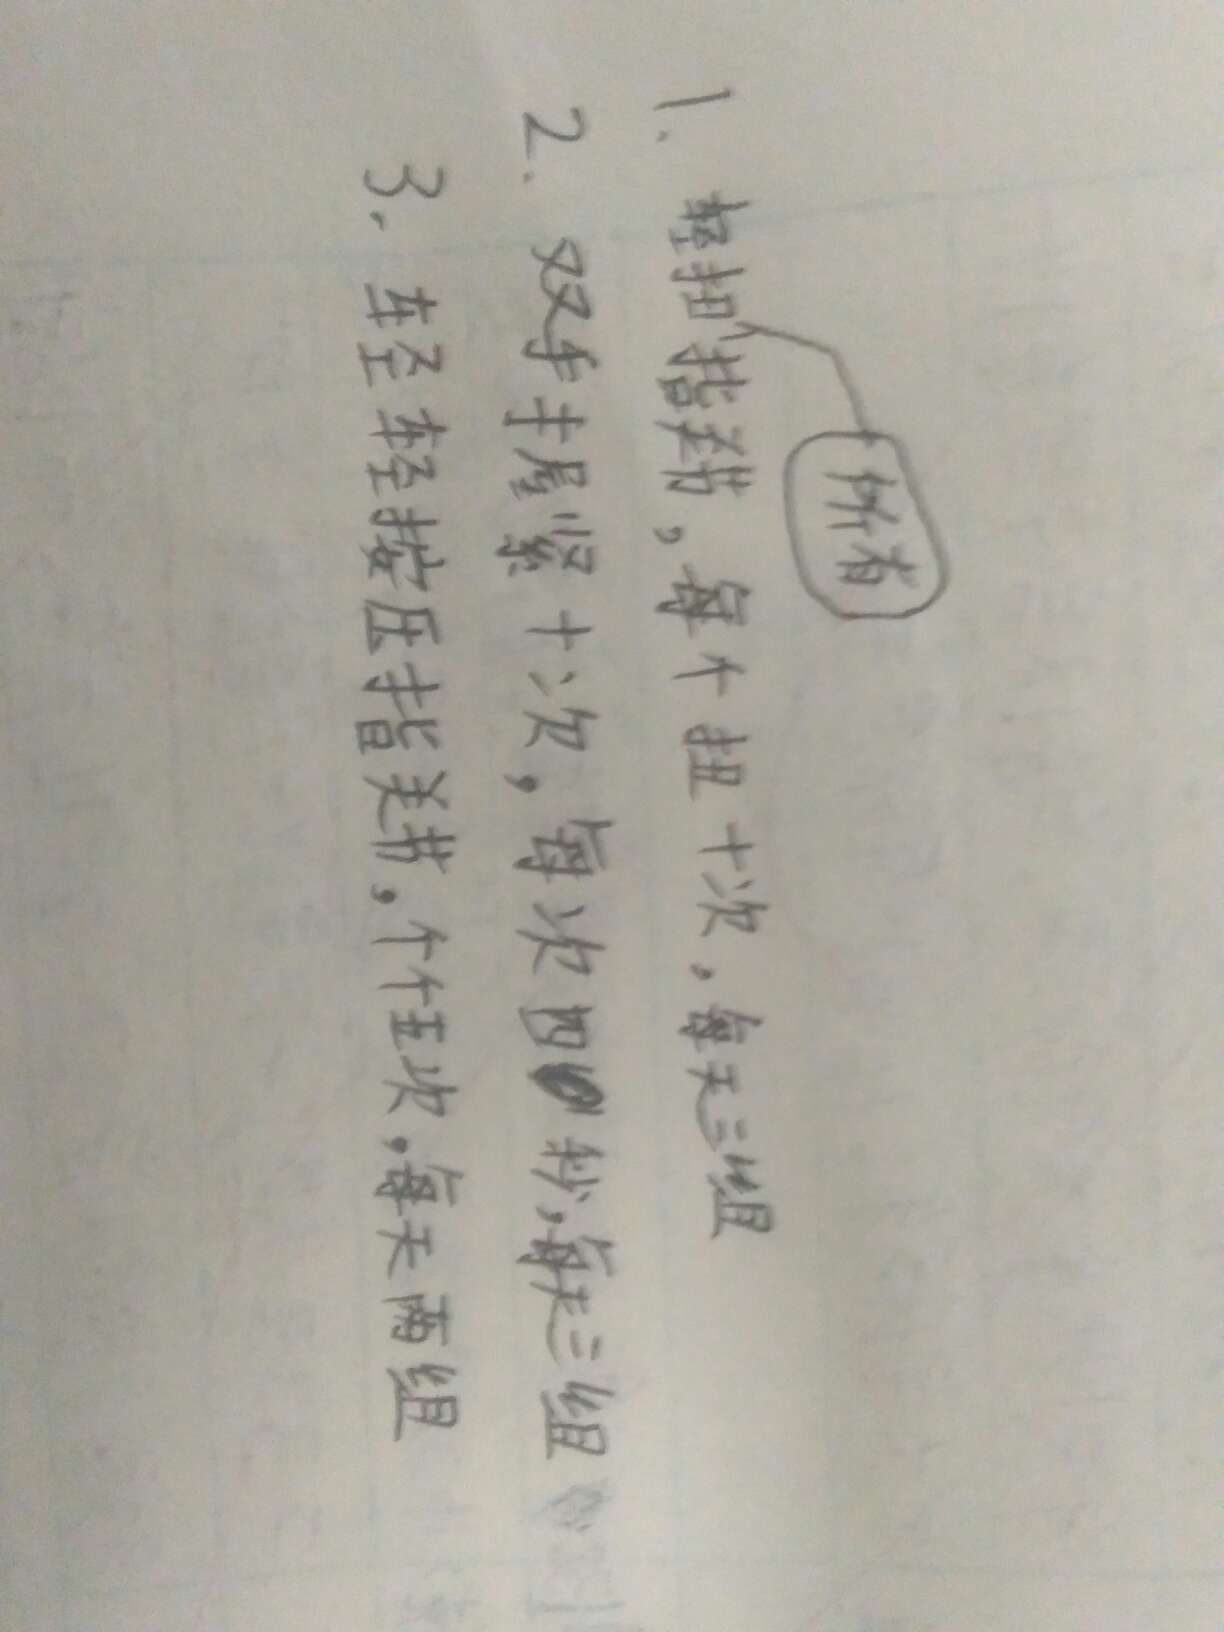 1. 轻扭所有指关节，每个扭十次，每天三组
2. 双手握紧十次，每次四秒，每天三组
3. 轻轻按压指关节，个个五次，每天两组